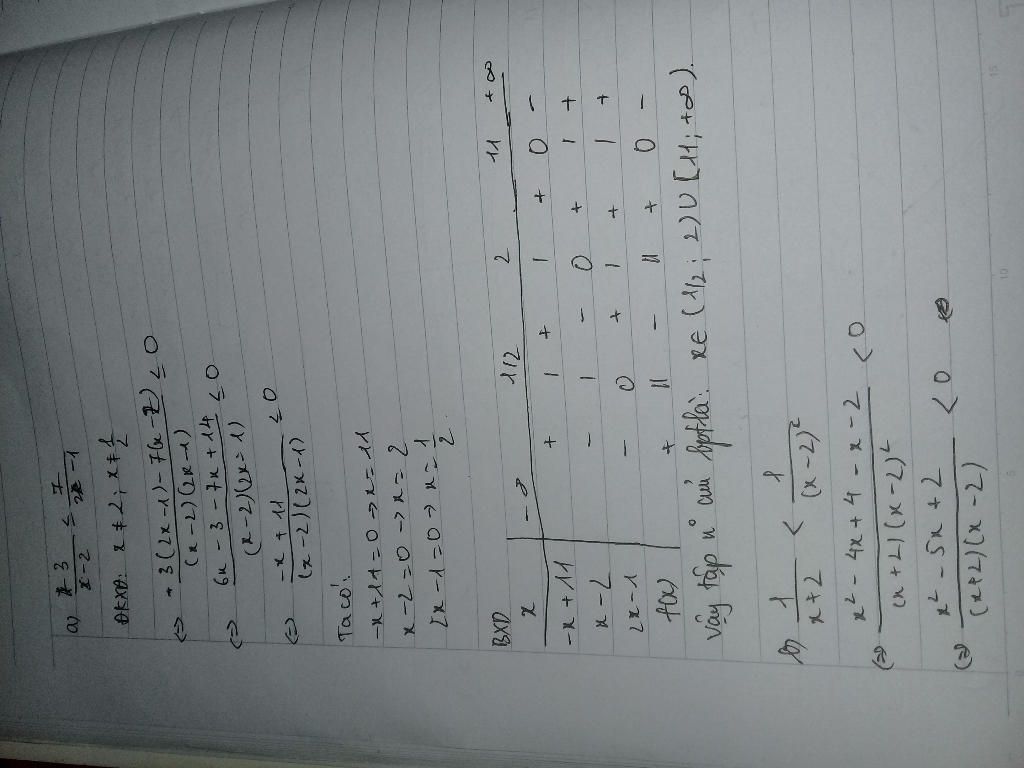 a) 3/(x-2) ≤ 7/(2x-1)
ĐKXĐ: x ≠ 2; x ≠ 1/2
(=) (3(2x-1) - 7(x-2))/((x-2)(2x-1)) ≤ 0
(=) (6x - 3 - 7x + 14)/((x-2)(2x-1)) ≤ 0
(=) (-x + 11)/((x-2)(2x-1)) ≤ 0
Ta có:
-x + 11 = 0 → x = 11
x - 2 = 0 → x = 2
2x - 1 = 0 → x = 1/2
BXD
x -∞ 1/2 2 11 +∞
-x+11 + | + | + 0 -
x-2 - | - 0 + | +
2x-1 - 0 + | + | +
f(x) + || - || + 0 -
Vậy tập n° của bpt là: x∈(1/2; 2)∪[11; +∞).
b) 1/(x+2) < 1/(x-2)²
(=) (x² - 4x + 4 - x - 2)/((x+2)(x-2)²) < 0
(=) (x² - 5x + 2)/((x+2)(x-2)) < 0